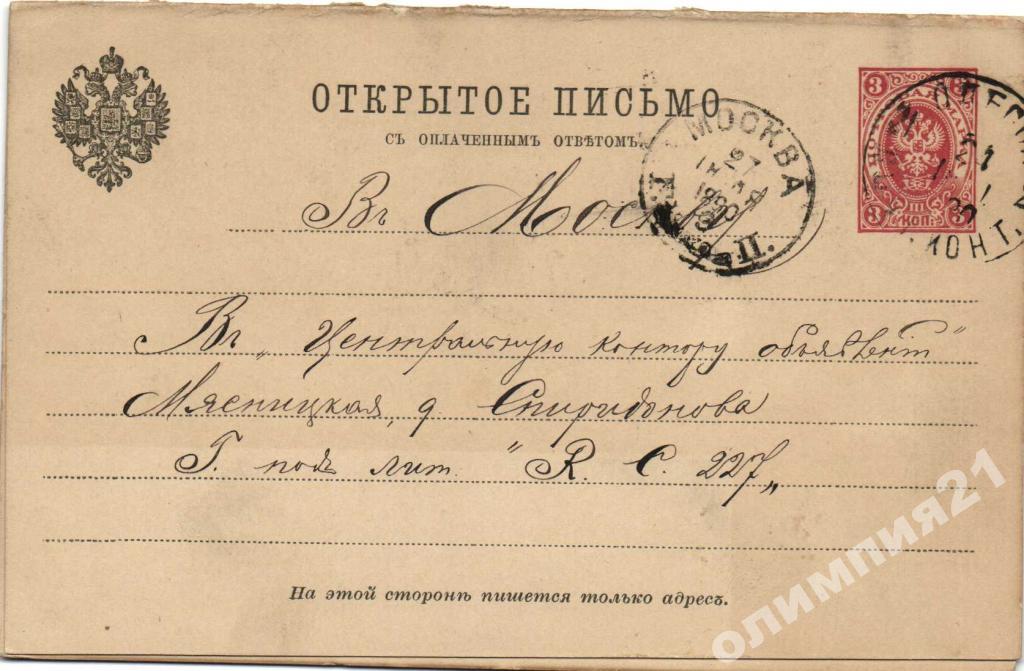 ОТКРЫТОЕ ПИСЬМО
СЪ ОПЛАЧЕННЫМЪ ОТВѢТОМЪ.
3 3
3 3
III
КОП.
МОСКВА
27
Въ Моск
Въ „Центральную контору объявленій"
Мясницкая, д Спиридонова
Г. подъ лит. "R. С. 227„
На этой сторонѣ пишется только адресъ.
олимпия21